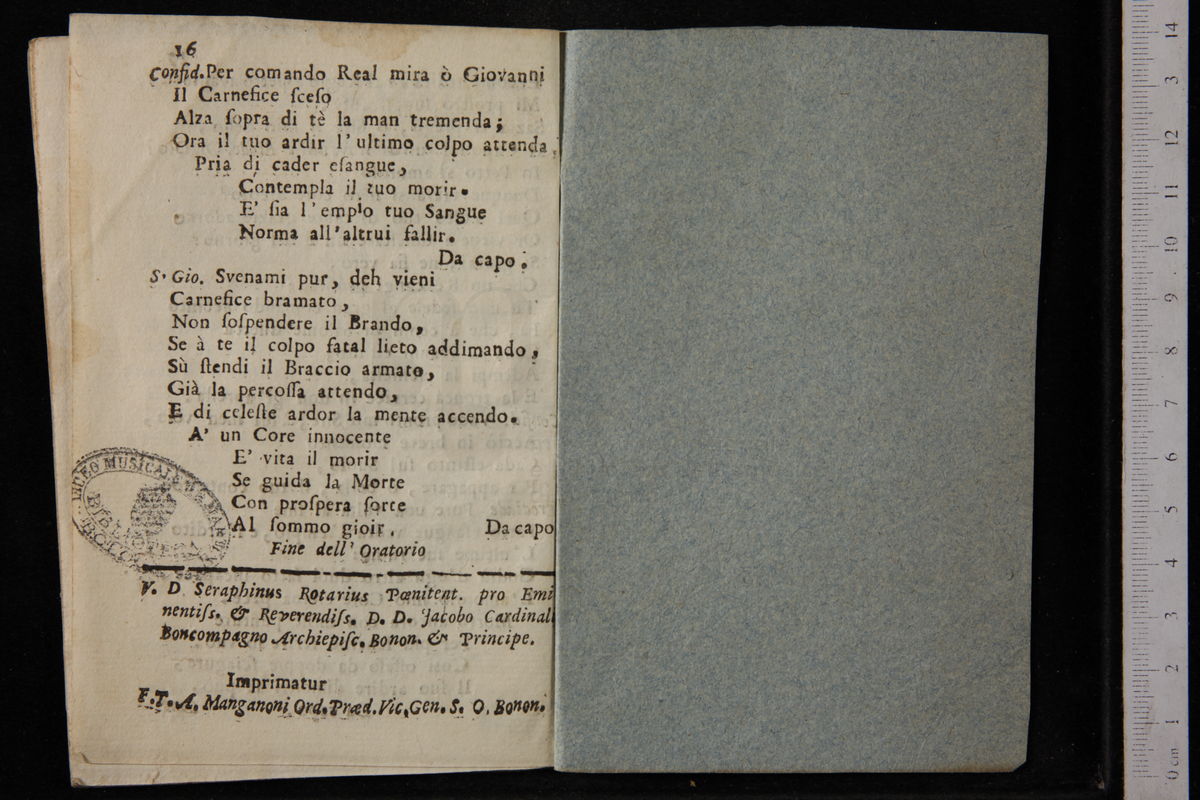 16
Confid. Per comando Real mira ò Giovanni
Il Carnefice ſceſo
Alza ſopra di tè la man tremenda;
Ora il tuo ardir l'ultimo colpo attenda,
Pria di cader eſangue,
Contempla il tuo morir.
E' ſia l'empio tuo Sangue
Norma all'altrui fallir.
Da capo.
S. Gio. Svenami pur, deh vieni
Carnefice bramato,
Non ſoſpendere il Brando,
Se à te il colpo fatal lieto addimando,
Sù ſtendi il Braccio armato,
Già la percoſſa attendo,
E di celeſte ardor la mente accendo.
A' un Core innocente
E' vita il morir
Se guida la Morte
Con proſpera ſorte
Al ſommo gioir. Da capo
Fine dell' Oratorio
V. D. Seraphinus Rotarius Pœnitent. pro Emi
nentiſs. & Reverendiſs. D. D. Jacobo Cardinali
Boncompagno Archiepiſc. Bonon. & Principe.
Imprimatur
F. T. A. Manganoni Ord. Præd. Vic. Gen. S. O. Bonon.
LICEO MUSICALE
BIBLIOTECA
0 cm 1 2 3 4 5 6 7 8 9 10 11 12 3 14